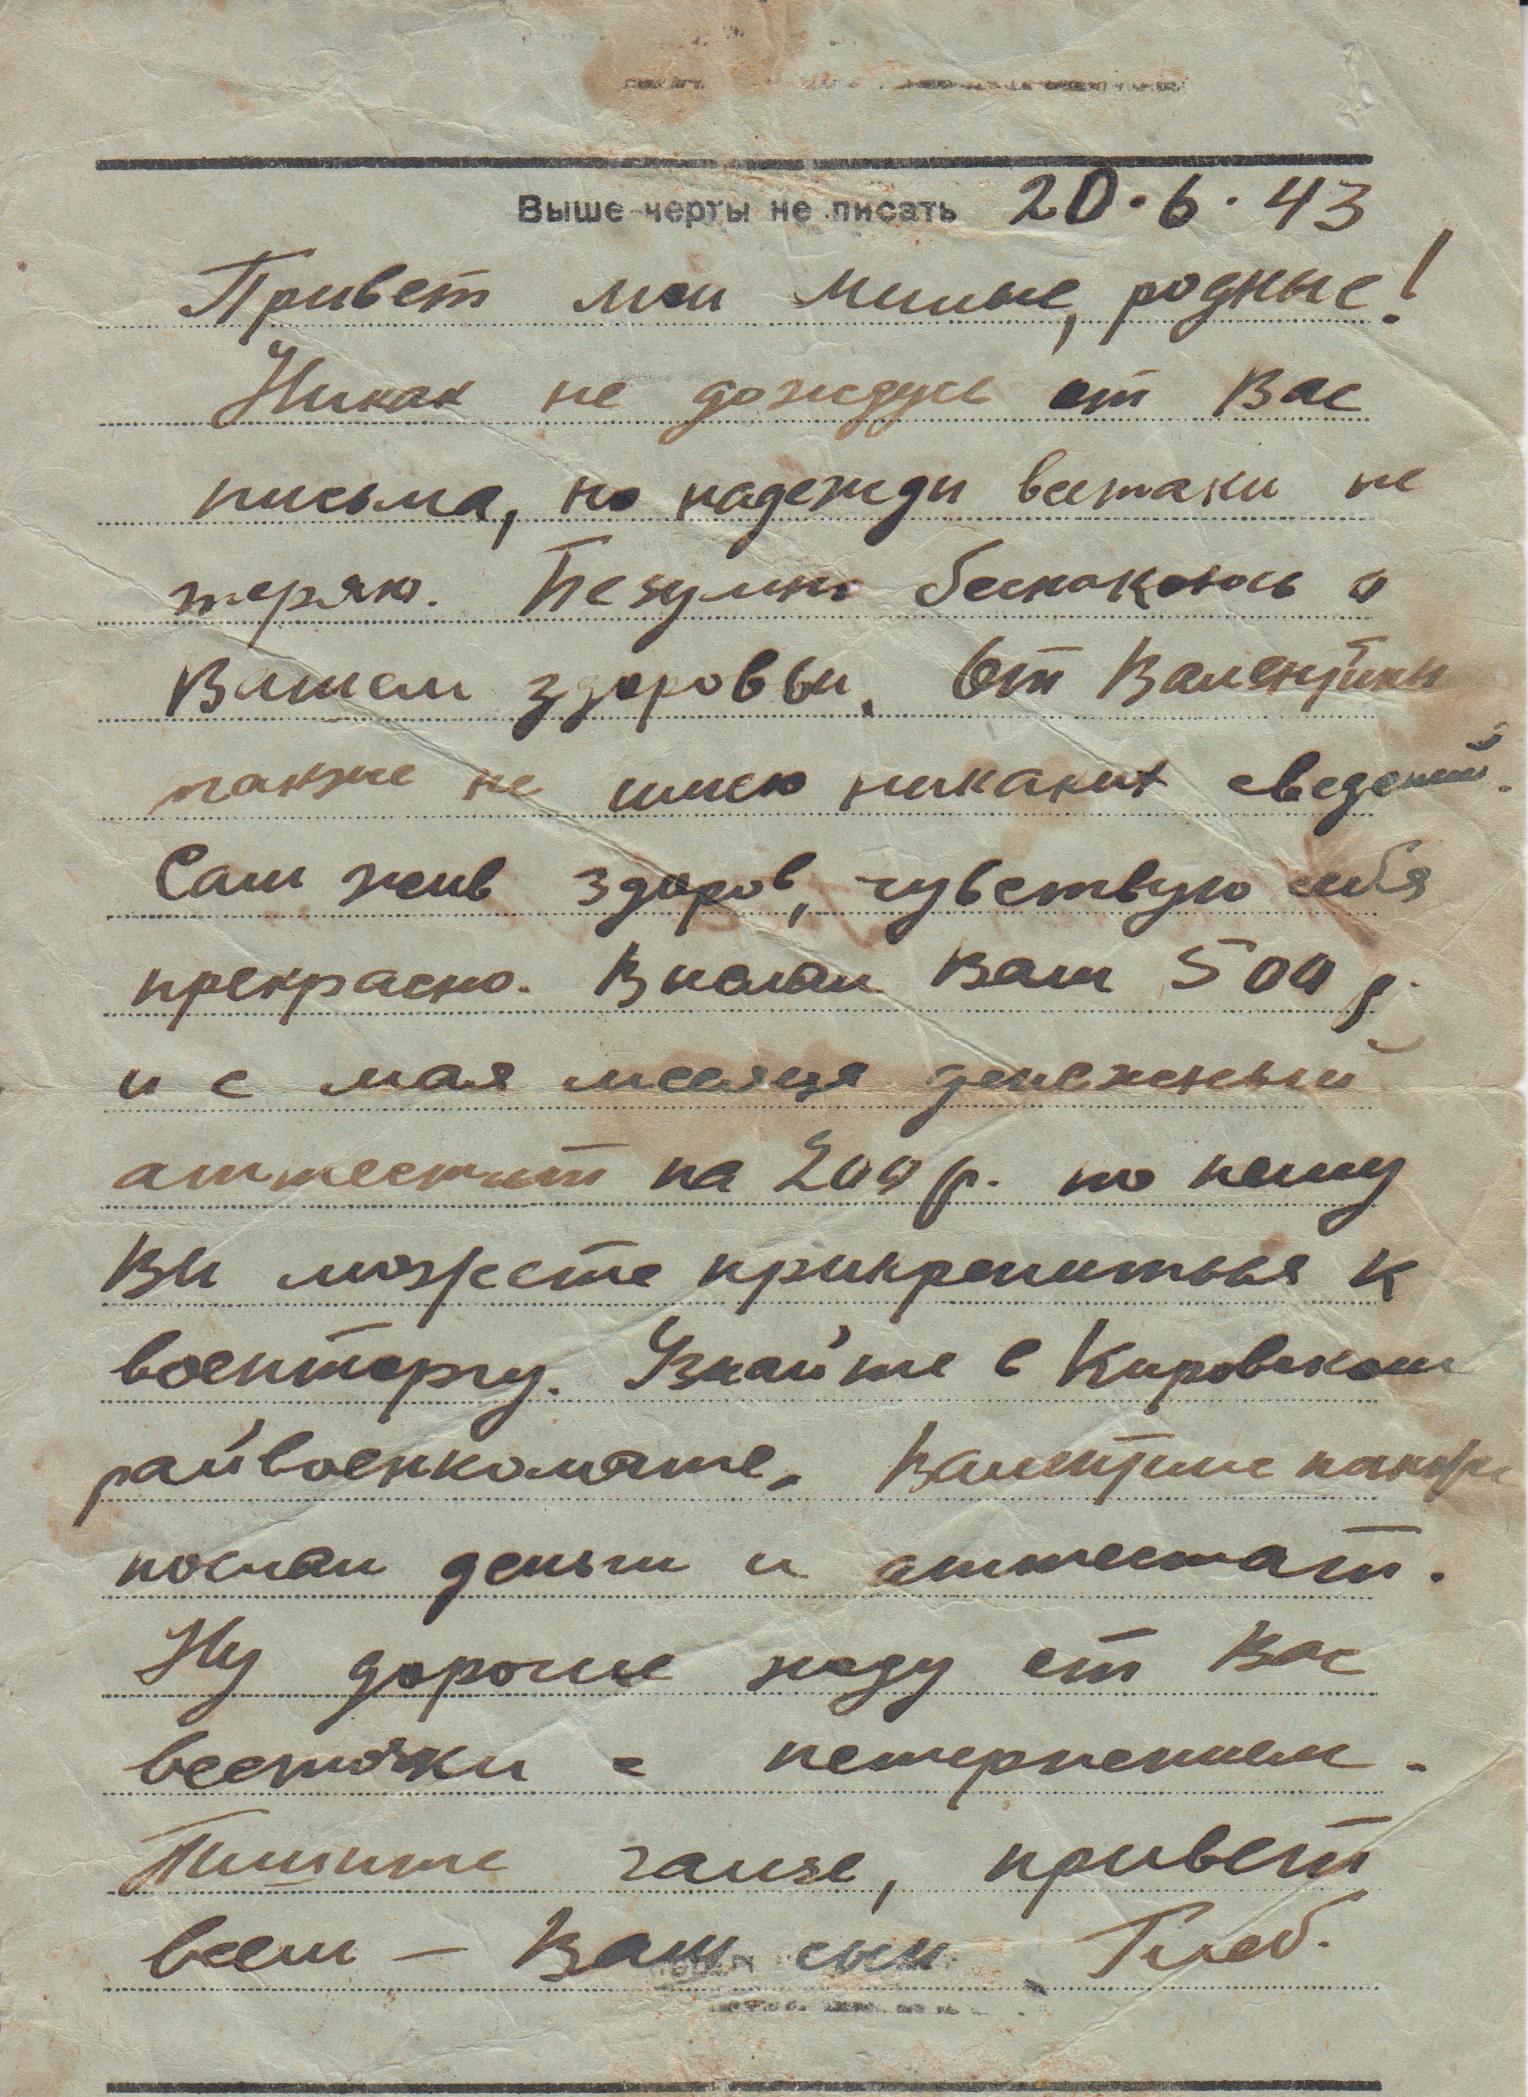 Выше черты не писать 20.6.43
Привет мои милые, родные!
Никак не дождусь от Вас
письма, но надежды всетаки не
теряю. Безумно беспокоюсь о
Вашем здоровьи. От Валентины
также не имею никаких сведений.
Сам жив здоров, чувствую себя
прекрасно. Выслал Вам 500 р.
и с мая месяца денежный
аттестат на 200 р. по нему
Вы можете прикрепиться к
военторгу. Узнайте в Кировском
райвоенкомате. Валентине также
послал деньги и аттестат.
Ну дорогие жду от Вас
весточки с нетерпением.
Пишите чаще, привет
всем – Ваш сын Глеб.